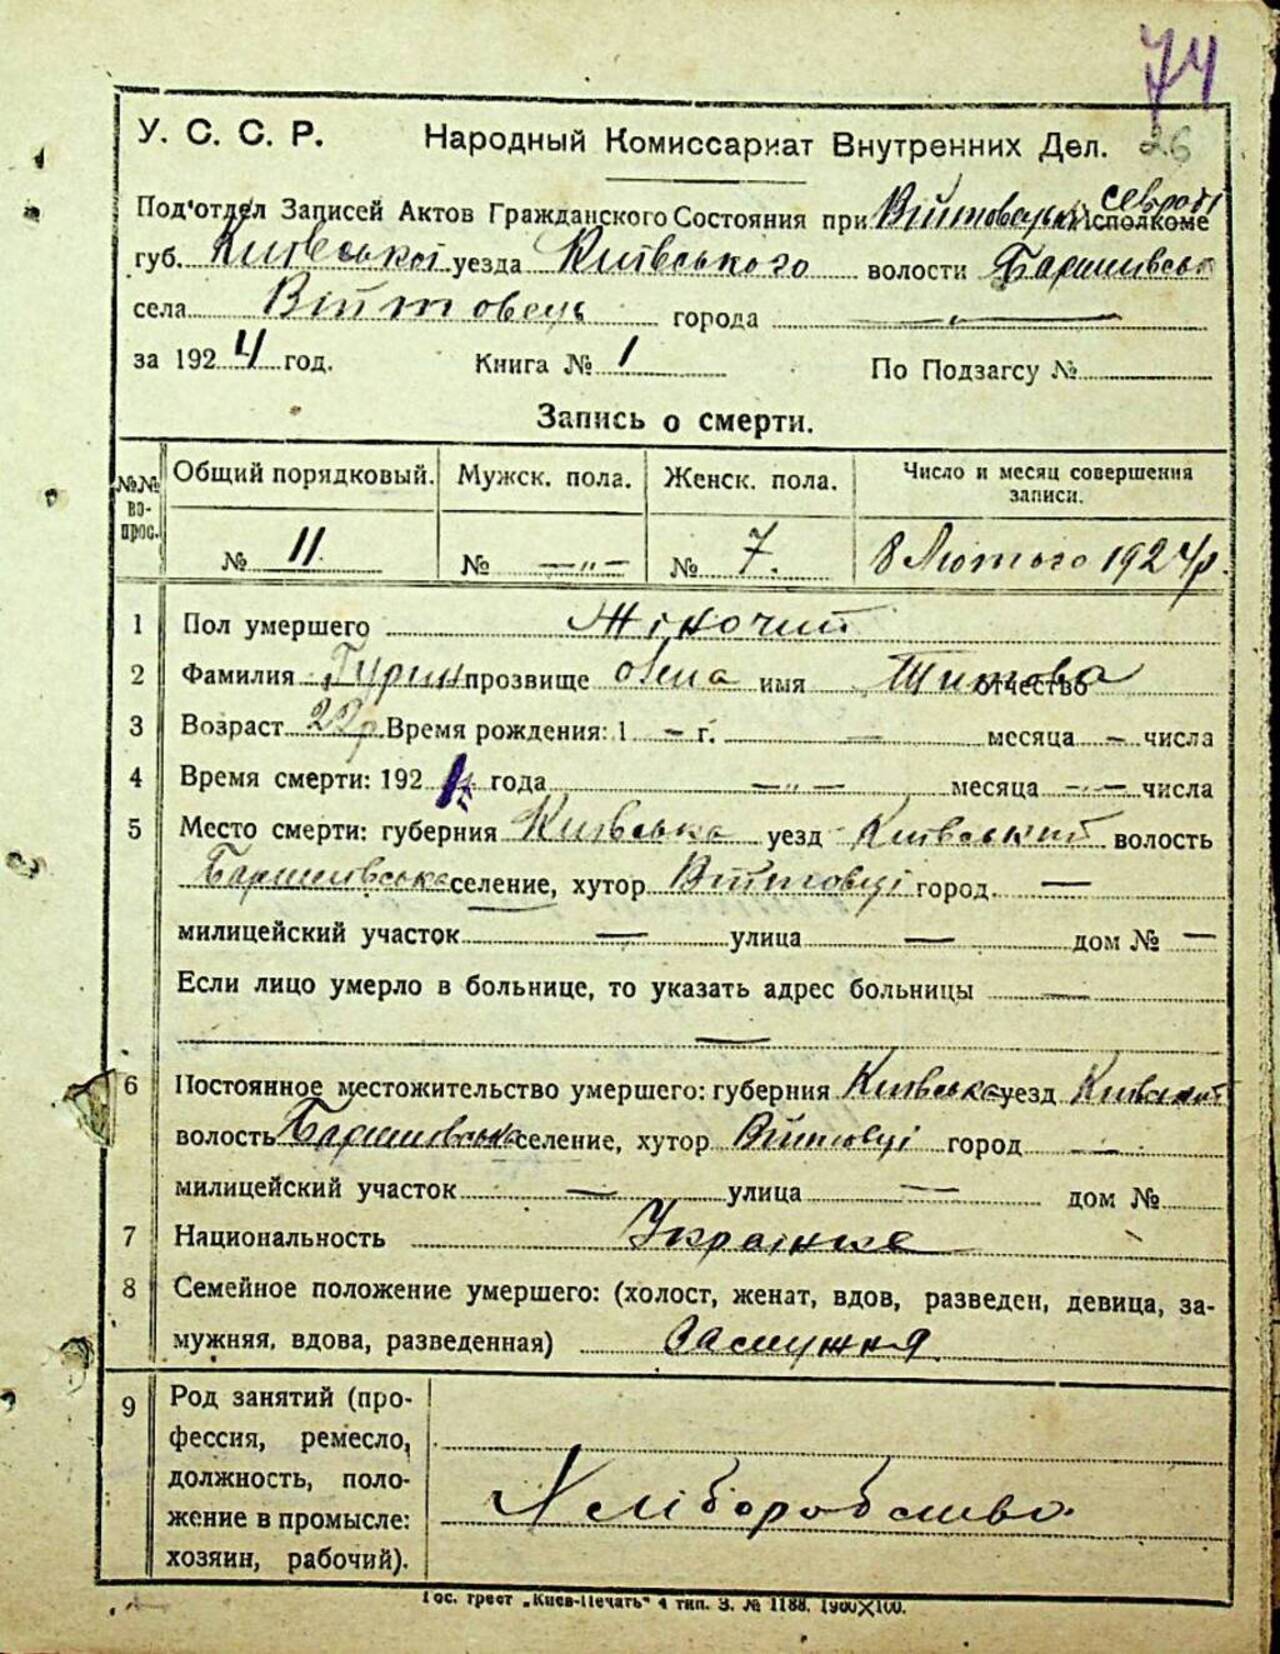 74
У. С. С. Р. Народный Комиссариат Внутренних Дел. 26
Под'отдел Записей Актов Гражданского Состояния при Исполкоме
губ. Київської уезда Київського волости
села Війтовець города —
за 1924 год. Книга № 1 По Подзагсу №
Запись о смерти.
№№ вопрос. Общий порядковый. Мужск. пола. Женск. пола. Число и месяц совершения записи.
№ 11. № —"— № 7. 8 Лютого 1924 р.
1 Пол умершего Жіночий
2 Фамилия Гурин прозвище Олена имя Титова отчество
3 Возраст 22 р. Время рождения: 1 — г. — месяца — числа
4 Время смерти: 192 года —"— месяца —"— числа
5 Место смерти: губерния Київська уезд Київський волость
Баришівська селение, хутор Війтовці город. —
милицейский участок — улица — дом № —
Если лицо умерло в больнице, то указать адрес больницы —
—
6 Постоянное местожительство умершего: губерния Київська уезд Київський
волость Баришівська селение, хутор Війтовці город —
милицейский участок — улица — дом №
7 Национальность Українка
8 Семейное положение умершего: (холост, женат, вдов, разведен, девица, за-
мужняя, вдова, разведенная) Замужня
9 Род занятий (про-
фессия, ремесло,
должность, поло-
жение в промысле:
хозяин, рабочий).
Хліборобство.
Гос. трест „Киев-Печать" 4 тип. З. № 1188. 1900×100.